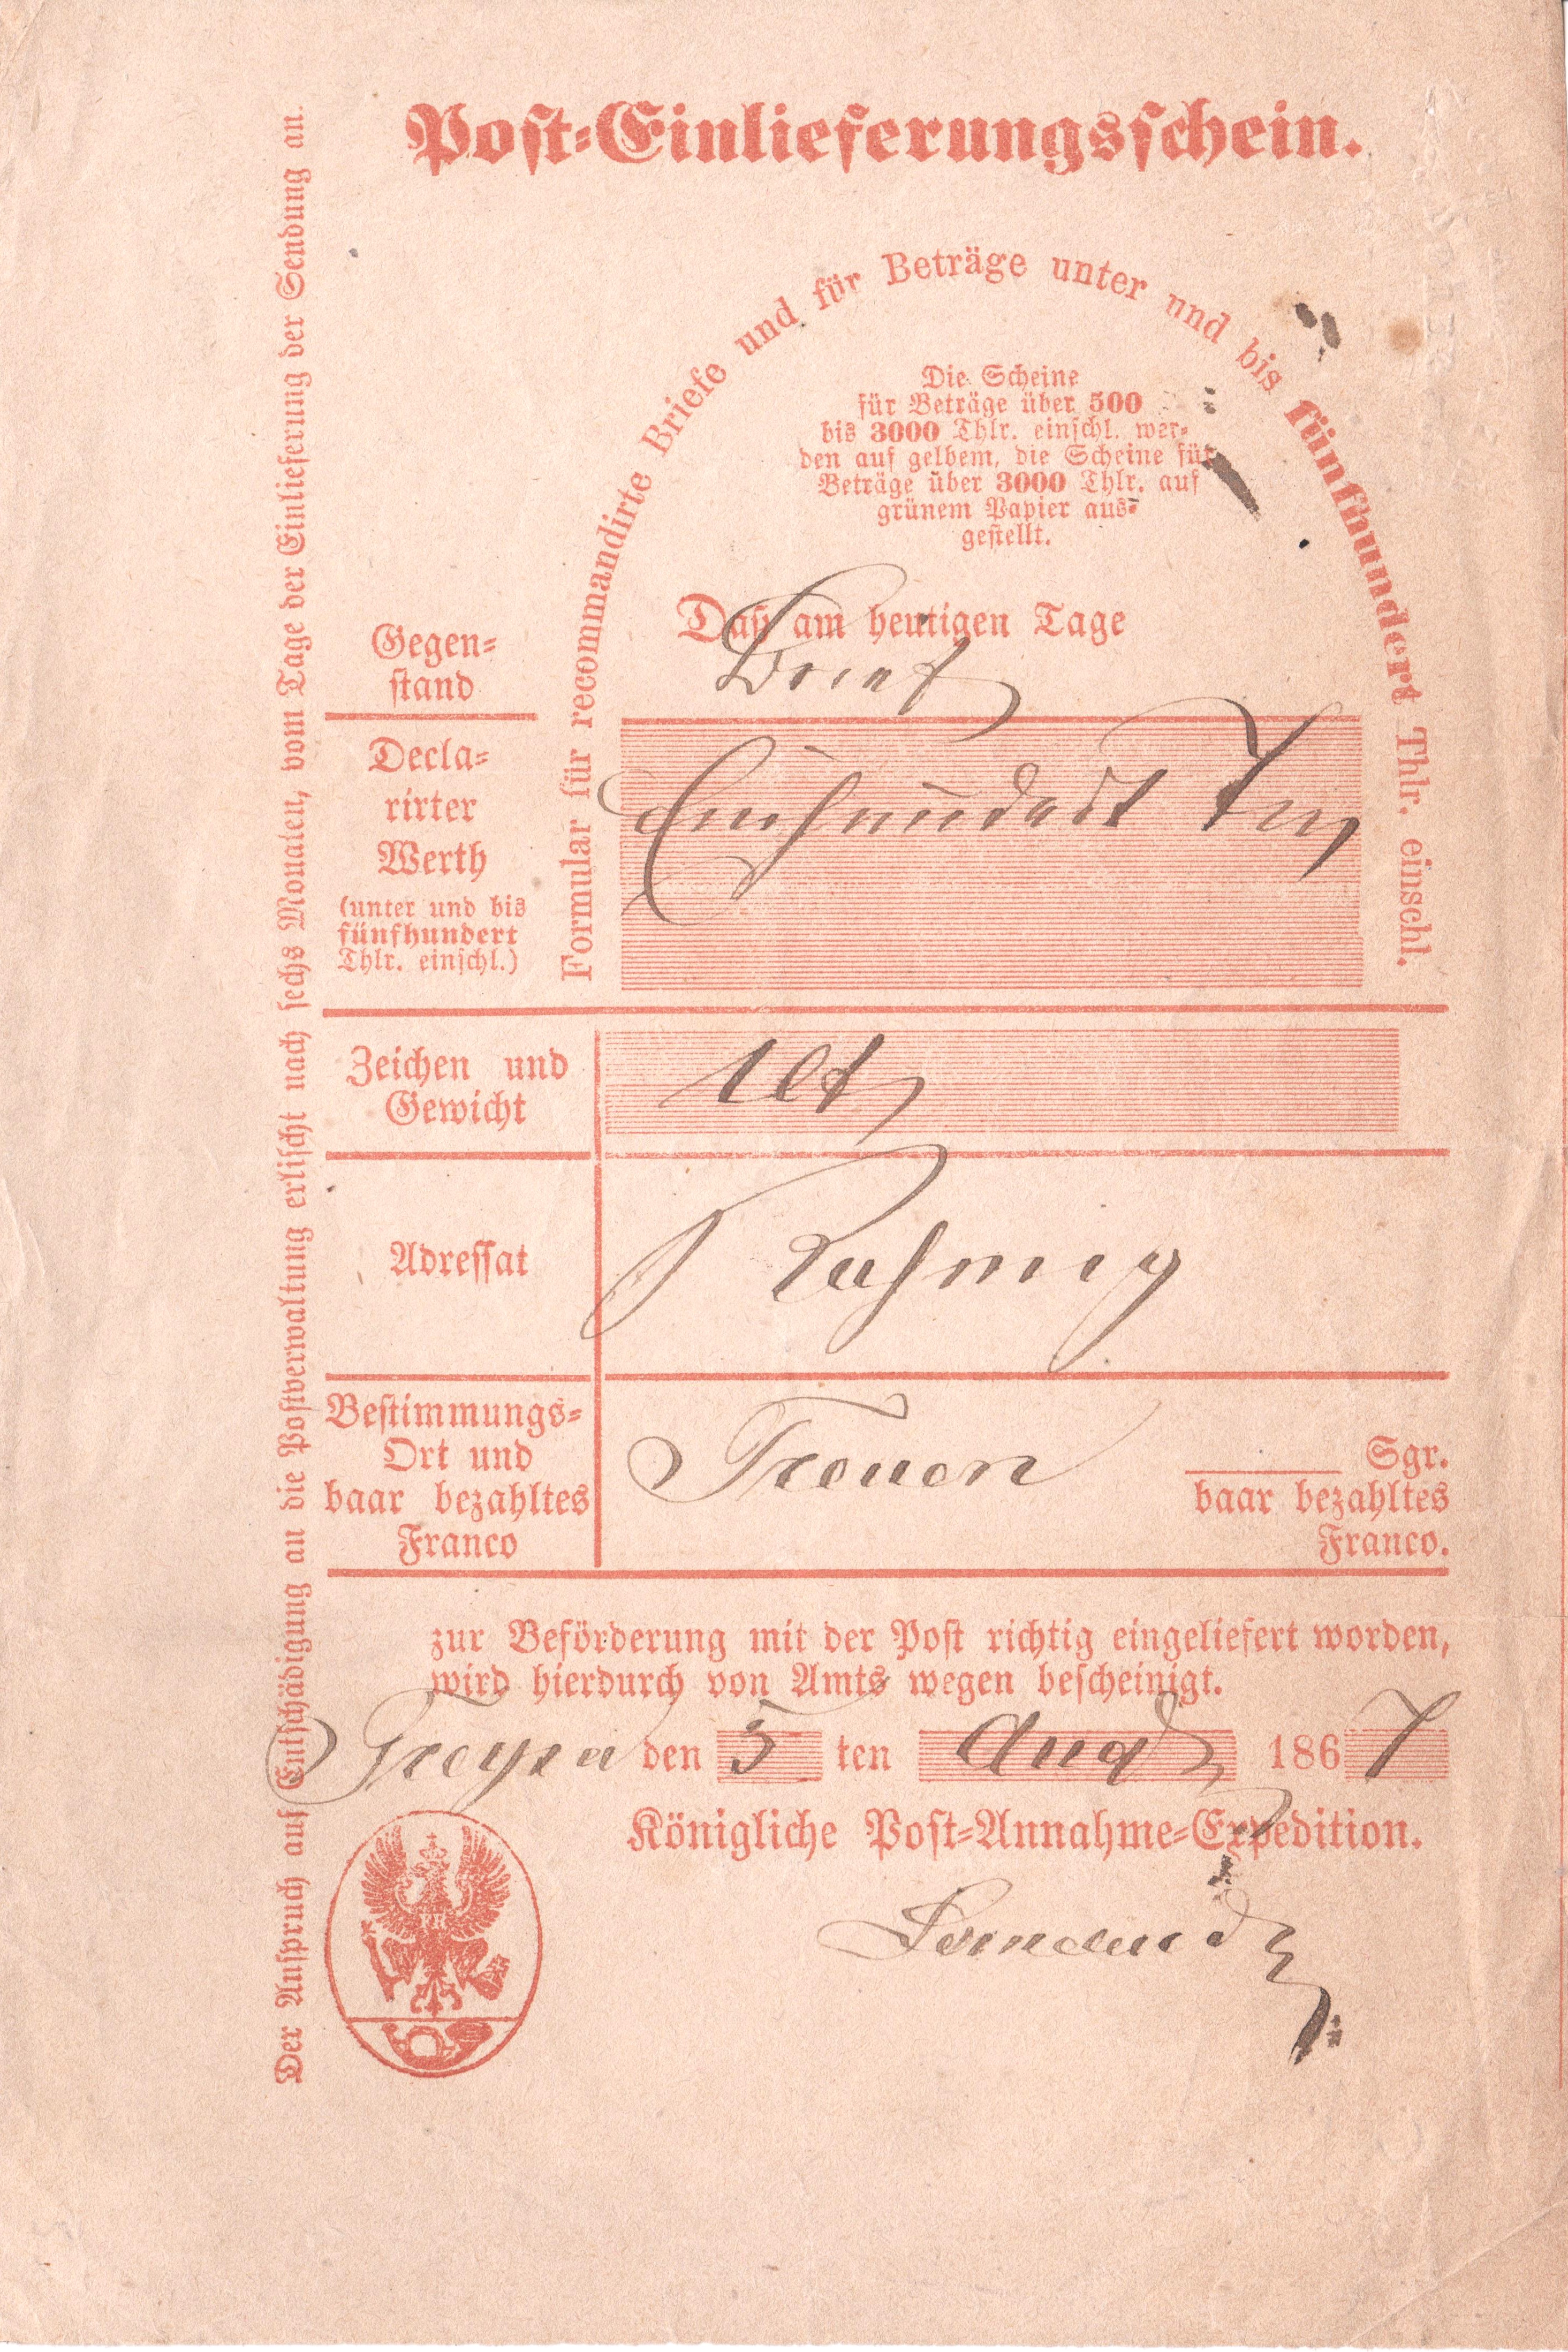 Post-Einlieferungsschein.
Formular für recommandirte Briefe und für Beträge unter und bis fünfhundert Thlr. einschl.
Die Scheine
für Beträge über 500
bis 3000 Thlr. einschl. wer-
den auf gelbem, die Scheine für
Beträge über 3000 Thlr. auf
grünem Papier aus-
gestellt.
Daß am heutigen Tage
Gegen-
stand
Brief
Decla-
rirter
Werth
(unter und bis
fünfhundert
Thlr. einschl.)
Einhundert
Zeichen und
Gewicht
Adressat
Bestimmungs-
Ort und
baar bezahltes
Franco
Treuen
Sgr.
baar bezahltes
Franco.
zur Beförderung mit der Post richtig eingeliefert worden,
wird hierdurch von Amts wegen bescheinigt.
Treysa den 5 ten Aug 1867
Königliche Post-Annahme-Expedition.
FR
Der Anspruch auf Entschädigung an die Postverwaltung erlischt nach sechs Monaten, vom Tage der Einlieferung der Sendung an.